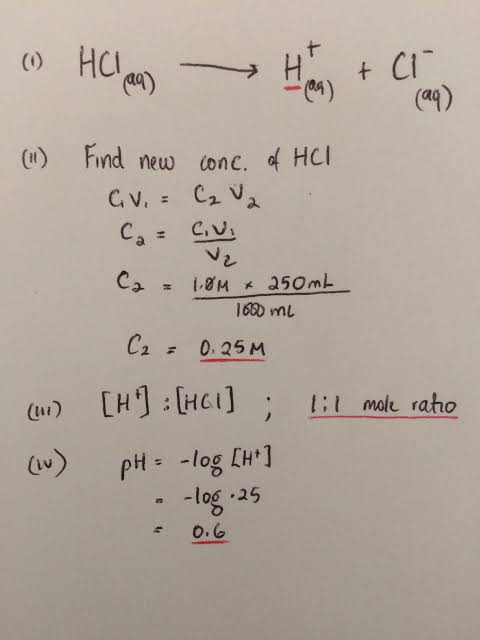 (i) HCl(aq) ⟶ H⁺(aq) + Cl⁻(aq)
(ii) Find new conc. of HCl
C₁V₁ = C₂V₂
C₂ = C₁V₁/V₂
C₂ = 1.0M × 250mL / 1000mL
C₂ = 0.25M
(iii) [H⁺] : [HCl] ; 1:1 mole ratio
(iv) pH = -log [H⁺]
= -log .25
= 0.6